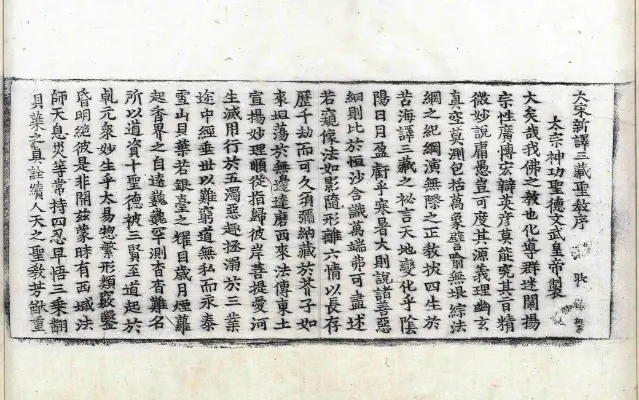 大宋新譯三藏聖教序
太宗神功聖德文武皇帝製
大矣哉我佛之教也化導群迷闡揚
宗性廣博宏辯英彦莫能究其旨精
微妙說庸愚豈可度其源義理幽玄
真空莫測包括萬象譬喻無垠綜法
網之紀綱演無際之正教拔四生於
苦海譯三藏之祕言天地變化乎陰
陽日月盈虧乎寒暑大則說諸善惡
細則比於恒沙含識萬端弗可盡述
若窺像法如影隨形離六情以長存
歷千劫而可久須彌納藏於芥子如
來坦蕩於無邊達磨西來法傳東土
宣揚妙理順從指歸彼岸菩提愛河
生滅用行於五濁惡趣拯溺於三業
途中經垂世以難窮道無私而永泰
雪山貝葉若銀臺之耀目歲月煙蘿
起香界之自遠巍巍罕測杳杳難名
所以道資十聖德被三賢至道起於
乹元衆妙生乎太易惣繁形類竅鑿
昏明絕彼是非開兹蒙昧有西域法
師天息灾等常持四忍早悟三乘翻
貝葉之真詮續人天之聖教芳猷重